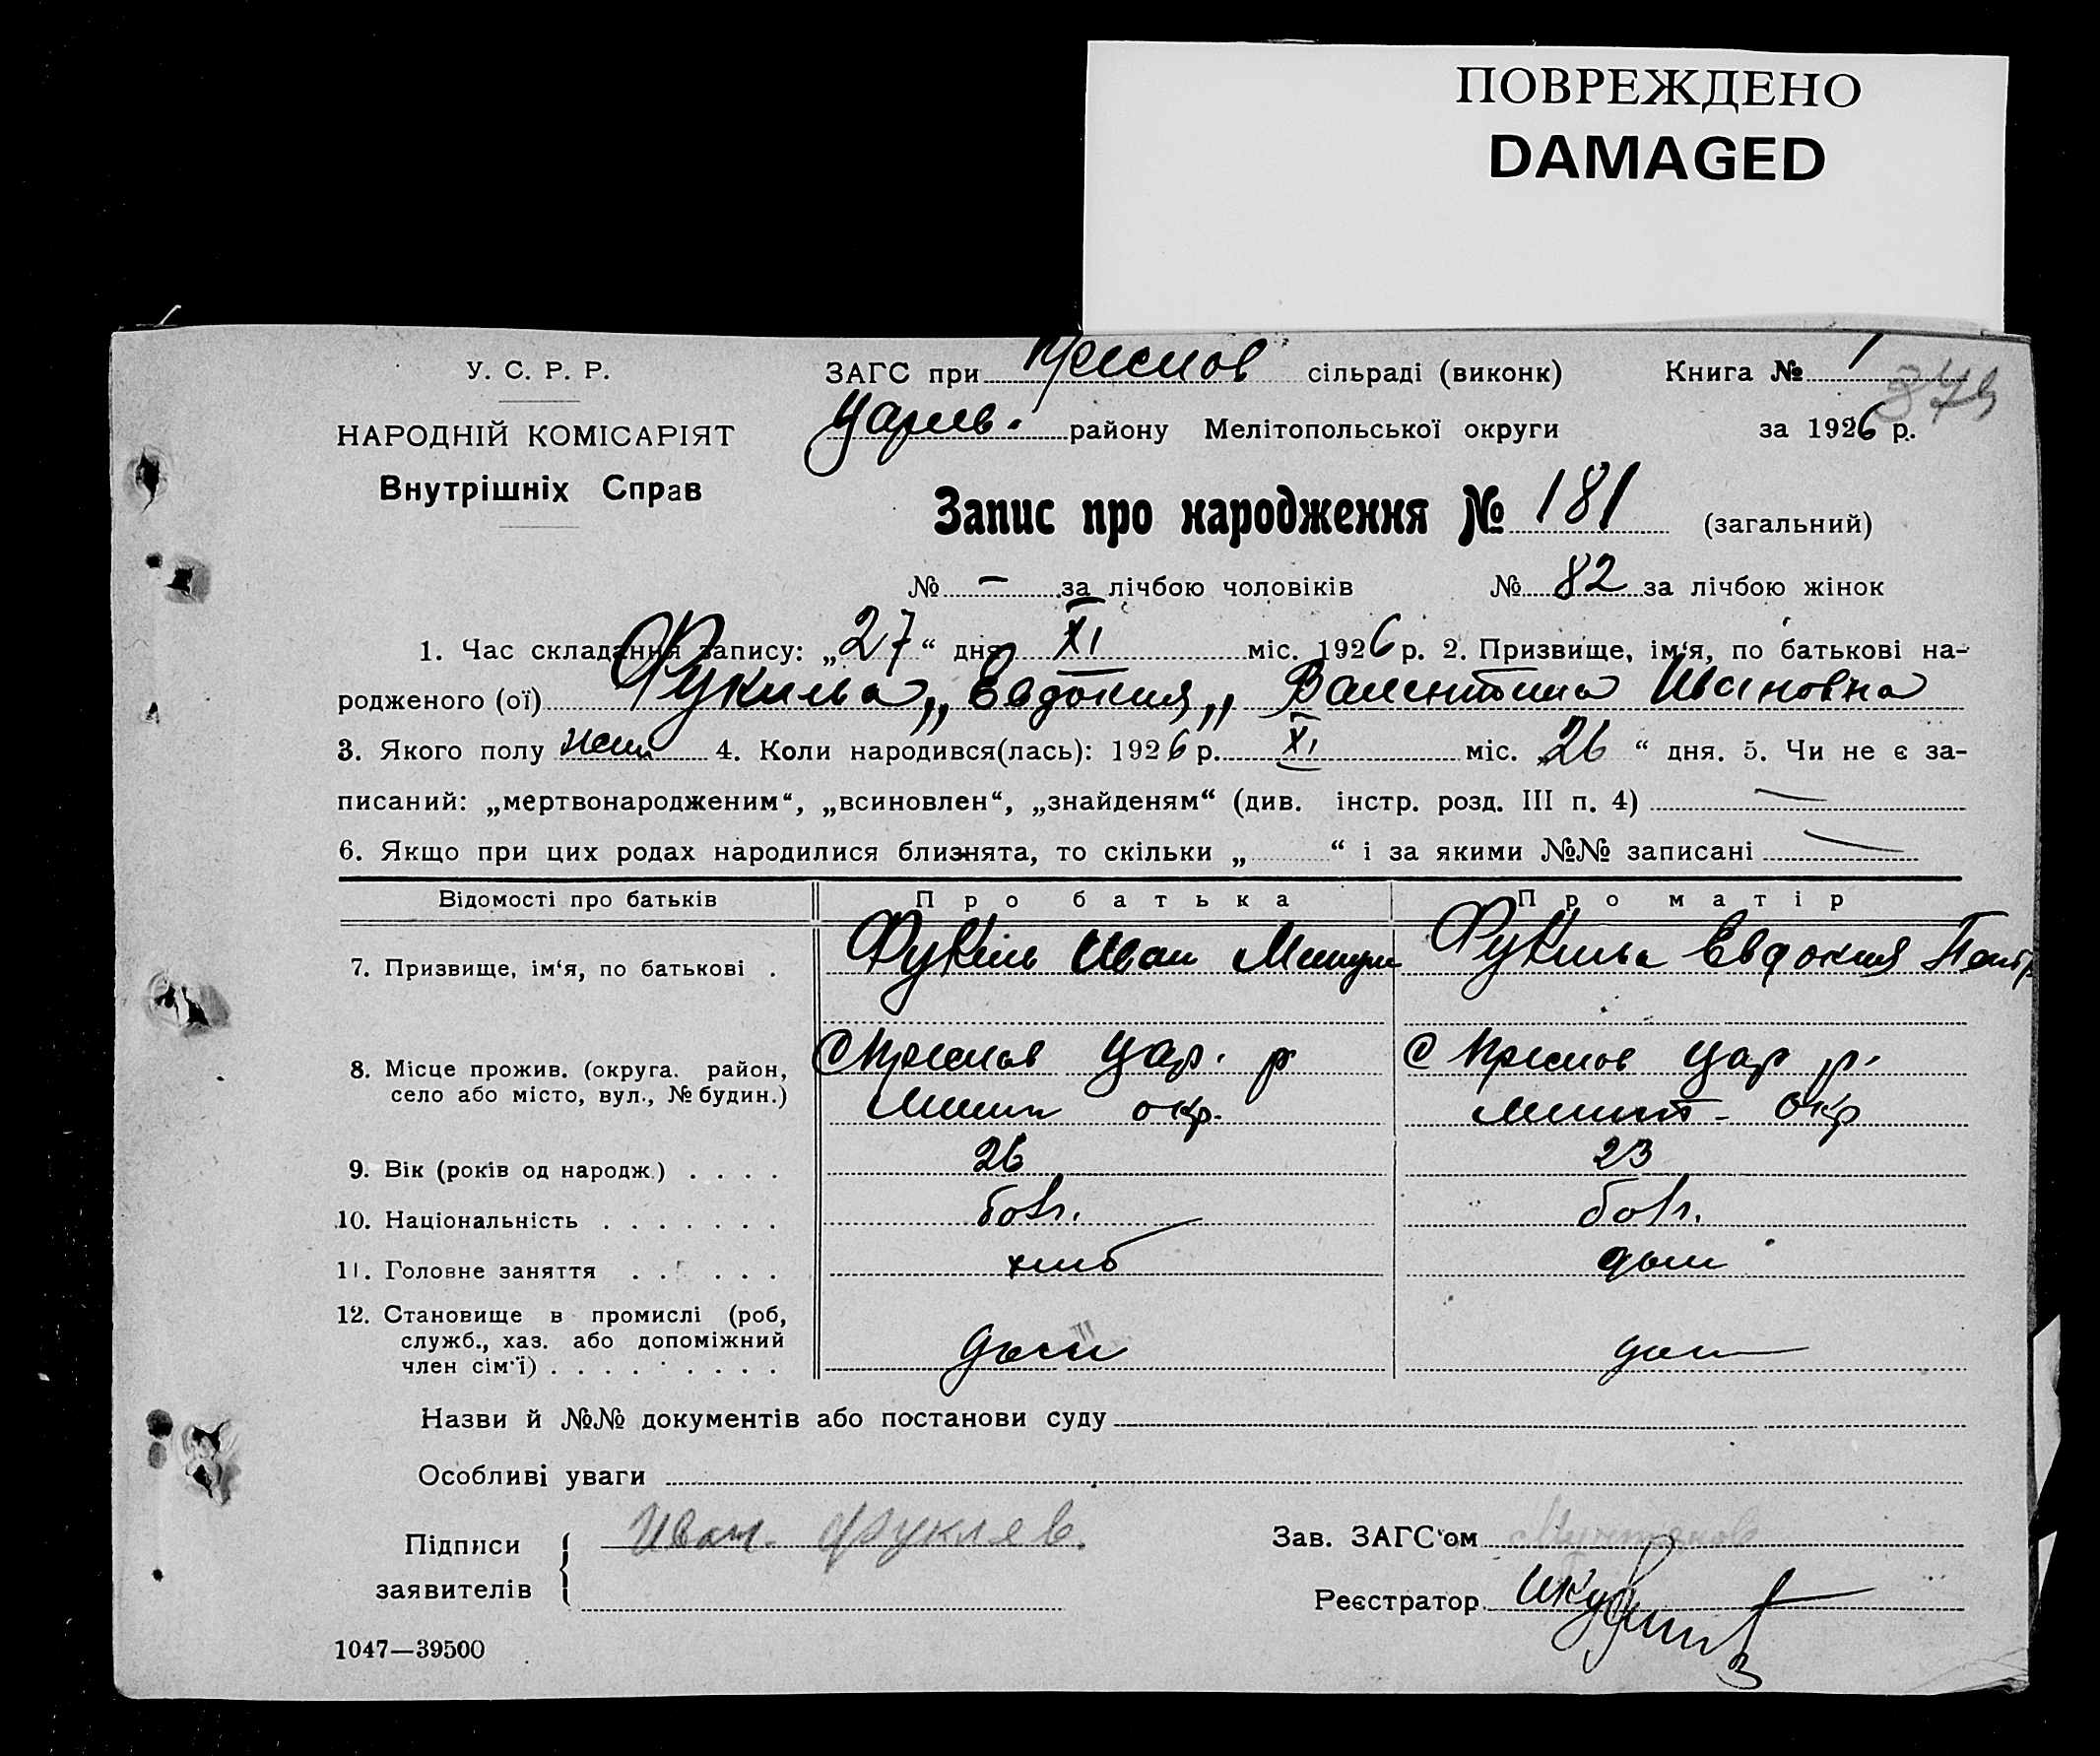 ПОВРЕЖДЕНО
DAMAGED
У. С. Р. Р.
ЗАГС при Преслов сільраді (виконк) Книга № 1
НАРОДНІЙ КОМІСАРІЯТ
Царев. району Мелітопольської округи за 1926 р.
Внутрішніх Справ
Запис про народження № 181 (загальний)
№ – за лічбою чоловіків № 82 за лічбою жінок
1. Час складання запису: „27“ дня XI міс. 1926 р. 2. Призвище, ім‘я, по батькові на-
родженого (ої) „Евдокия„ Валентина Ивановна
3. Якого полу жен 4. Коли народився(лась): 1926 р. XI міс. 26 “ дня. 5. Чи не є за-
писаний: „мертвонародженим“, „всиновлен“, „знайденям“ (див. інстр. розд. III п. 4) —
6. Якщо при цих родах народилися близнята, то скільки „ “ і за якими №№ записані —
Відомості про батьків Про батька Про матір
7. Призвище, ім‘я, по батькові . Иван Евдокия Петр
8. Місце прожив. (округа. район, село або місто, вул., № будин.) С Преслов Цар. р С Преслов Цар р.
окр. окр
9. Вік (років од народж.) . . . . 26 23
10. Національність . . . . . . . болг. болг.
11. Головне заняття . . . . . . хліб дом
12. Становище в промислі (роб,
служб., хаз. або допоміжний
член сім‘ї) . . . . . . . . .
Назви й №№ документів або постанови суду
Особливі уваги
Підписи заявителів Иван. Фуклев.
Зав. ЗАГС‘ом
Реєстратор
1047—39500